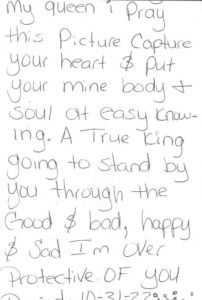 My queen i Pray
this Picture Capture
your heart & Put
your mine body &
soul at easy know-
ing. A True King
going to stand by
you through the
Good & bad, happy
& Sad I'm over
Protective OF you
10-31-22